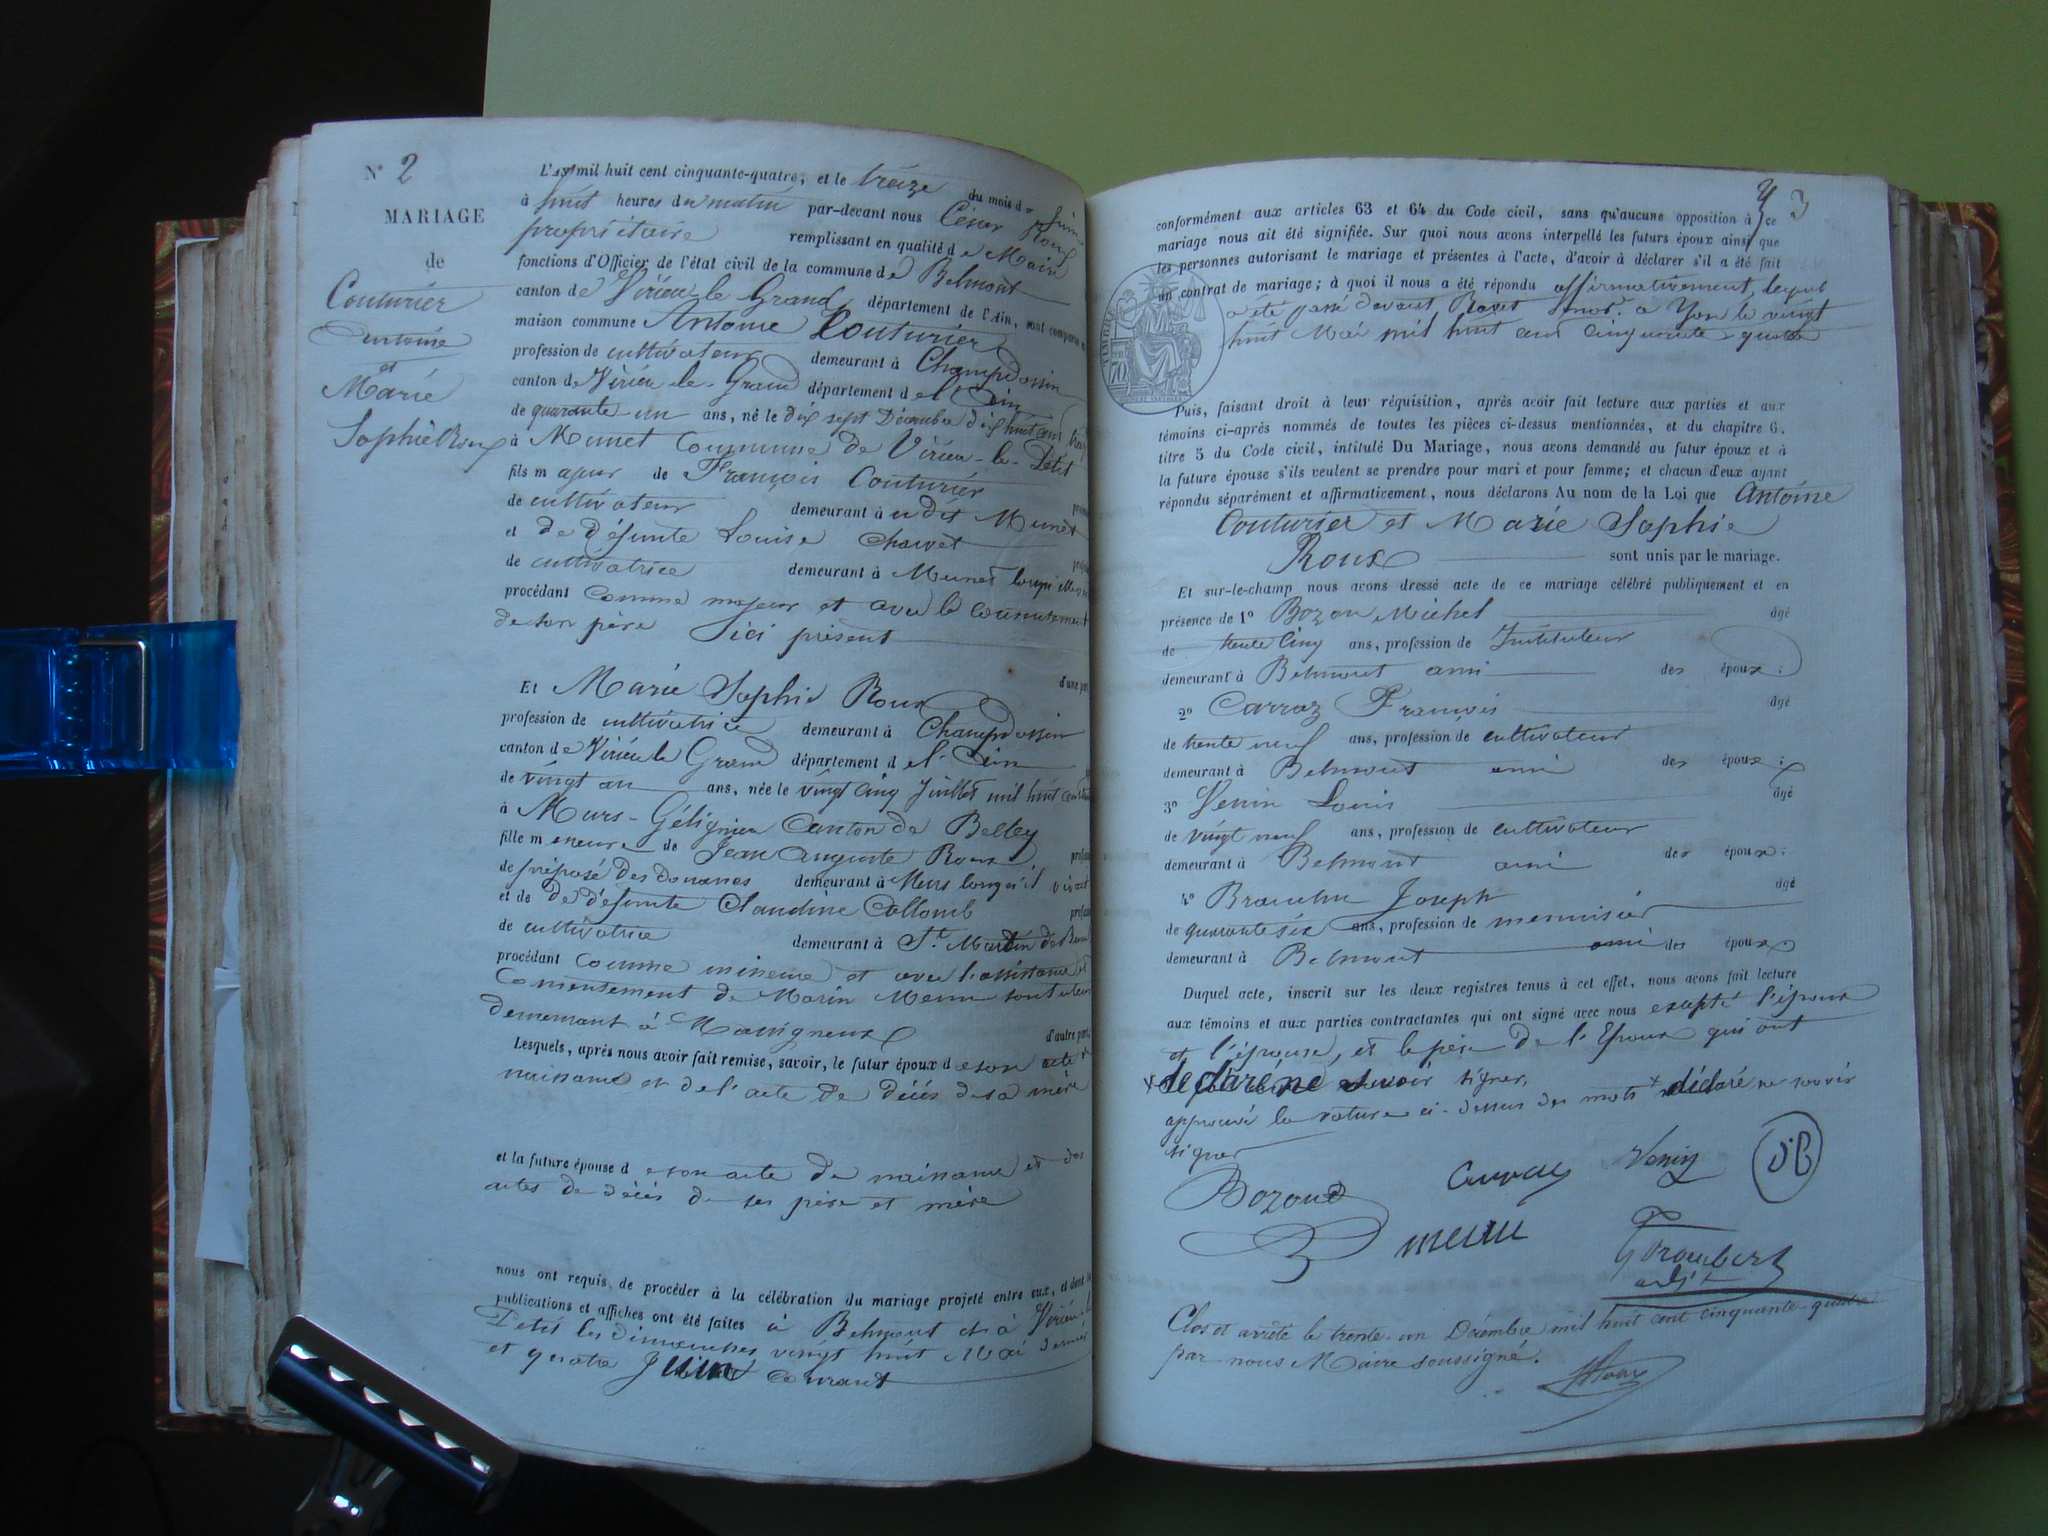 N° 2
MARIAGE
de
Couturier
Antoine
et
Marie
Sophie Roux
L'an mil huit cent cinquante-quatre, et le treize du mois de Juin
à huit heures du matin par-devant nous César Roux
propriétaire remplissant en qualité de Maire
fonctions d'Officier de l'état civil de la commune de Belmont
canton de Virieu le Grand, département de l'Ain, sont comparus
maison commune Antoine Couturier
profession de cultivateur demeurant à Champdossin
canton de Virieu-le-Grand département de l'Ain
de quarante-un ans, né le dix sept Décembre dix huit cent
à Munet Commune de Virieu-le-Petit
fils majeur de François Couturier
de cultivateur demeurant à udit Munet
et de défunte Louise Charvet
de cultivatrice demeurant à Munet
procédant comme majeur et avec le consentement
de son père ici présent
d'une part
Et Marie Sophie Roux
profession de cultivatrice demeurant à Champdossin
canton de Virieu le Grand département de l'Ain
de vingt an ans, née le vingt cinq Juillet mil huit cent
à Murs-Gélignieu Canton de Belley
fille mineure de Jean Auguste Roux
de préposé des douanes demeurant à Murs lorsqu'il vivait
et de de défunte Claudine Collomb
de cultivatrice demeurant à St. Martin de
procédant comme mineure et avec l'assistance et
Consentement de Marin son tuteur
demeurant à Massigneux
d'autre part.
Lesquels, après nous avoir fait remise, savoir, le futur époux de son acte de
naissance et de l'acte de décès de sa mère
et la future épouse de son acte de naissance et des
actes de décès de ses père et mère
nous ont requis de procéder à la célébration du mariage projeté entre eux, et dont les
publications et affiches ont été faites à Belmont et à Virieu le
Petit les dimanches vingt huit Mai dernier
et quatre Juin courant
3
conformément aux articles 63 et 64 du Code civil, sans qu'aucune opposition à ce
mariage nous ait été signifiée. Sur quoi nous avons interpellé les futurs époux ainsi que
les personnes autorisant le mariage et présentes à l'acte, d'avoir à déclarer s'il a été fait
un contrat de mariage; à quoi il nous a été répondu affirmativement, lequel
a été passé devant not. à Yon le vingt
huit Mai mil huit cent cinquante-quatre
Puis, faisant droit à leur réquisition, après avoir fait lecture aux parties et aux
témoins ci-après nommés de toutes les pièces ci-dessus mentionnées, et du chapitre 6.
titre 5 du Code civil, intitulé Du Mariage, nous avons demandé au futur époux et à
la future épouse s'ils veulent se prendre pour mari et pour femme; et chacun d'eux ayant
répondu séparément et affirmativement, nous déclarons Au nom de la Loi que Antoine
Couturier et Marie Sophie
Roux sont unis par le mariage.
Et sur-le-champ nous avons dressé acte de ce mariage célébré publiquement et en
présence de 1° Bozon Michel âgé
de trente Cinq ans, profession de Instituteur
demeurant à Belmont ami des époux;
2° Carraz François âgé
de trente neuf ans, profession de cultivateur
demeurant à Belmont ami des époux;
3° Venin Louis âgé
de vingt neuf ans, profession de cultivateur
demeurant à Belmont ami des époux;
4° Joseph âgé
de quarante six ans, profession de menuisier
demeurant à Belmont ami des époux.
Duquel acte, inscrit sur les deux registres tenus à cet effet, nous avons fait lecture
aux témoins et aux parties contractantes qui ont signé avec nous excepté l'époux
et l'épouse, et le père de l'Epoux qui ont
déclaré ne savoir signer.
approuvé la rature ci-dessus des mots déclaré ne savoir
signer
Venin
Clos et arrêté le trente-un Décembre mil huit cent cinquante-quatre
par nous Maire soussigné.
Roux